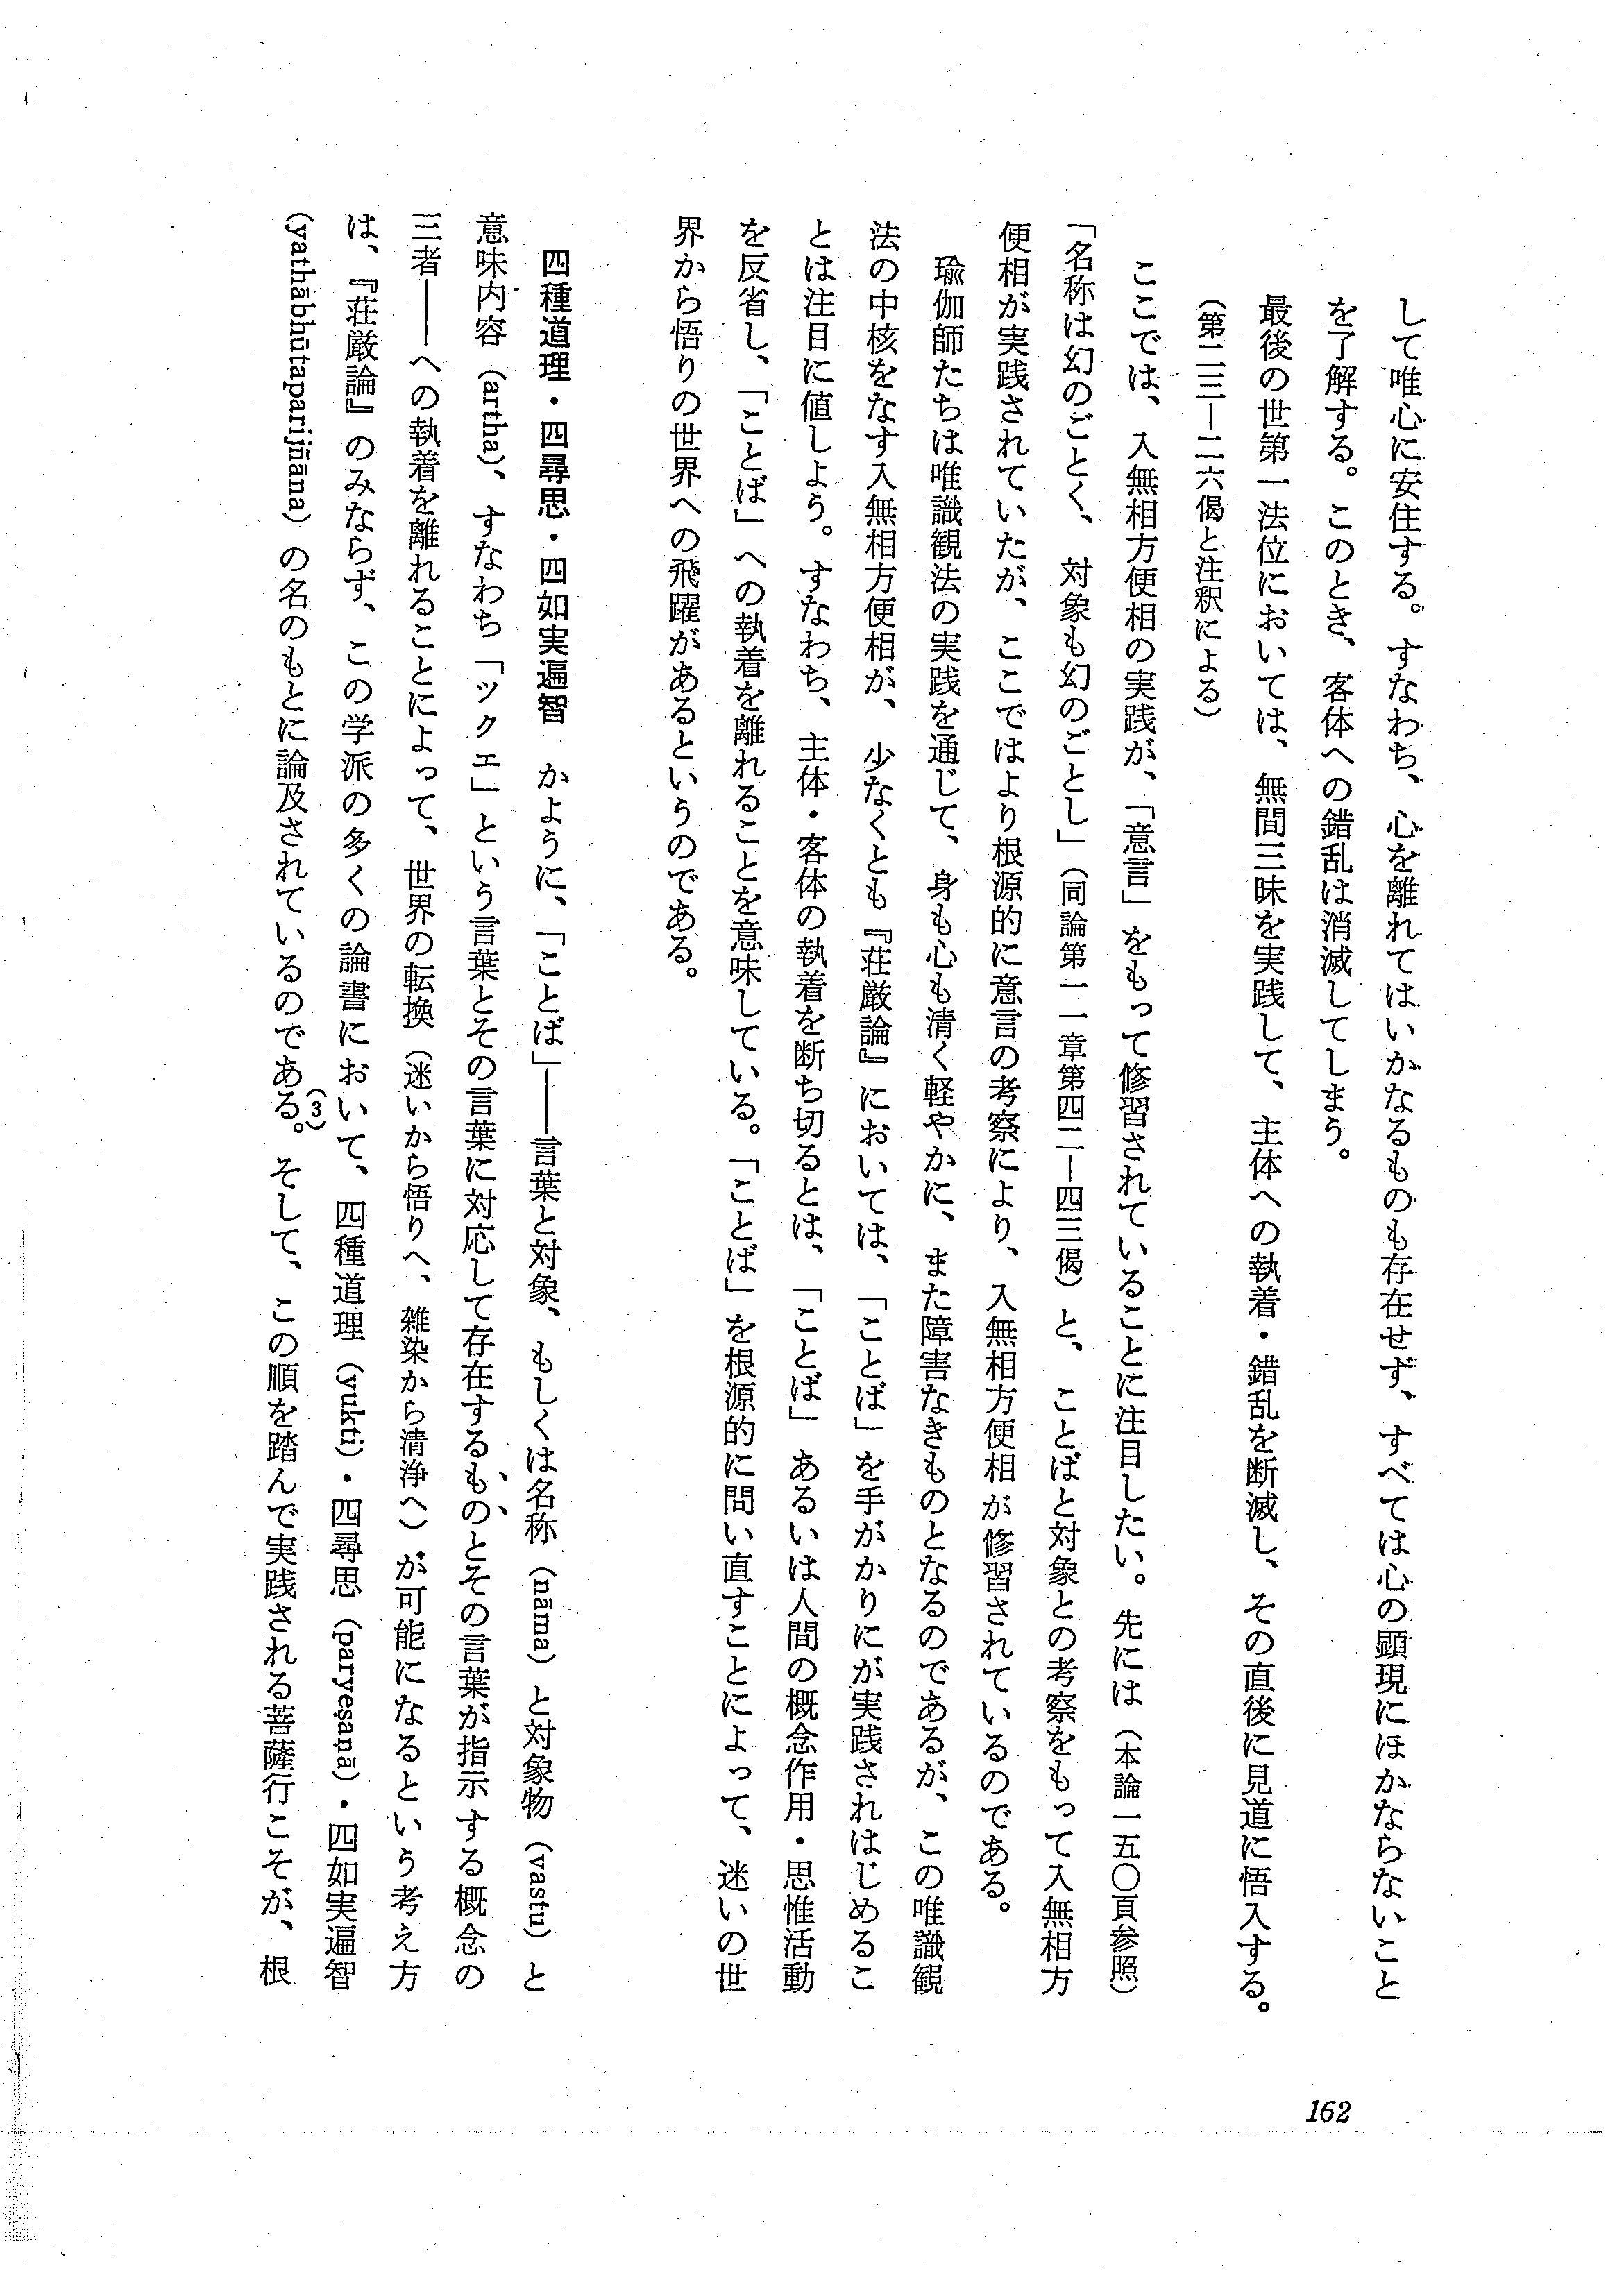 して唯心に安住する。すなわち、心を離れてはいかなるものも存在せず、すべては心の顕現にほかならないこと
を了解する。このとき、客体への錯乱は消滅してしまう。
最後の世第一法位においては、無間三昧を実践して、主体への執着・錯乱を断滅し、その直後に見道に悟入する。
(第二三―二六偈と注釈による)
ここでは、入無相方便相の実践が、「意言」をもって修習されていることに注目したい。先には(本論一五〇頁参照)
「名称は幻のごとく、対象も幻のごとし」(同論第一一章第四二―四三偈)と、ことばと対象との考察をもって入無相方
便相が実践されていたが、ここではより根源的に意言の考察により、入無相方便相が修習されているのである。
瑜伽師たちは唯識観法の実践を通じて、身も心も清く軽やかに、また障害なきものとなるのであるが、この唯識観
法の中核をなす入無相方便相が、少なくとも『荘厳論』においては、「ことば」を手がかりにが実践されはじめるこ
とは注目に値しよう。すなわち、主体・客体の執着を断ち切るとは、「ことば」あるいは人間の概念作用・思惟活動
を反省し、「ことば」への執着を離れることを意味している。「ことば」を根源的に問い直すことによって、迷いの世
界から悟りの世界への飛躍があるというのである。
四種道理・四尋思・四如実遍智 かように、「ことば」――言葉と対象、もしくは名称(nāma)と対象物(vastu)と
意味内容(artha)、すなわち「ツクエ」という言葉とその言葉に対応して存在するものとその言葉が指示する概念の
三者――への執着を離れることによって、世界の転換(迷いから悟りへ、雑染から清浄へ)が可能になるという考え方
は、『荘厳論』のみならず、この学派の多くの論書において、四種道理(yukti)・四尋思(paryeṣaṇā)・四如実遍智
(yathābhūtaparijñāna)の名のもとに論及されているのである。(3)そして、この順を踏んで実践される菩薩行こそが、根
162